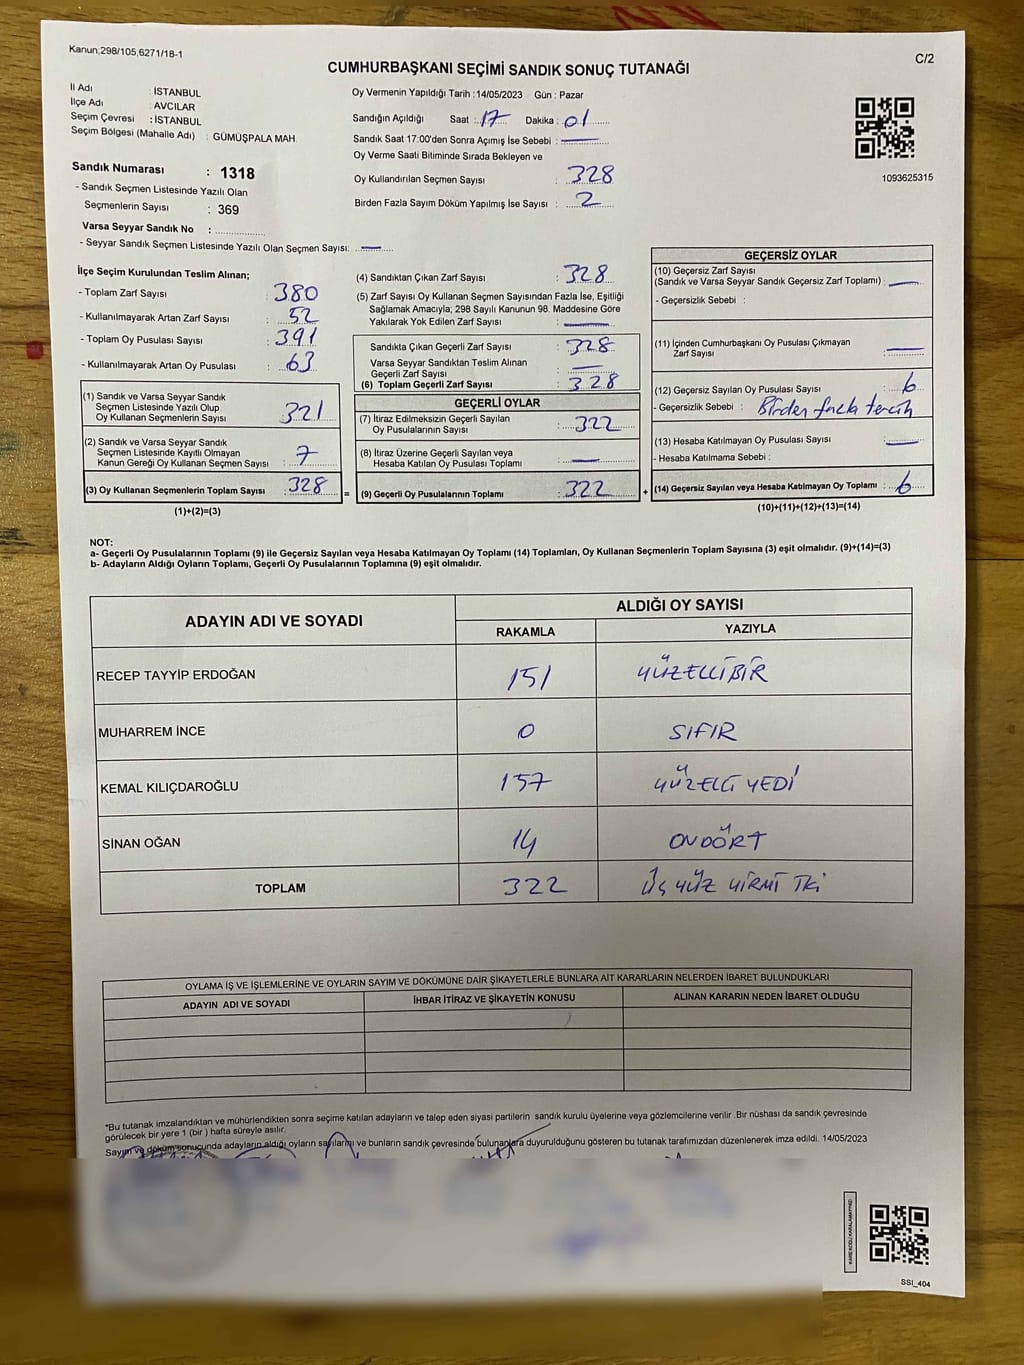 Kanun,298/105,6271/18-1
C/2
CUMHURBAŞKANI SEÇİMİ SANDIK SONUÇ TUTANAĞI
İl Adı : İSTANBUL
İlçe Adı : AVCILAR
Seçim Çevresi : İSTANBUL
Seçim Bölgesi (Mahalle Adı) : GÜMÜŞPALA MAH.
Sandık Numarası : 1318
- Sandık Seçmen Listesinde Yazılı Olan
Seçmenlerin Sayısı : 369
Varsa Seyyar Sandık No :
- Seyyar Sandık Seçmen Listesinde Yazılı Olan Seçmen Sayısı: —
Oy Vermenin Yapıldığı Tarih : 14/05/2023 Gün : Pazar
Sandığın Açıldığı Saat : 17 Dakika : 01
Sandık Saat 17:00'den Sonra Açımış İse Sebebi : —
Oy Verme Saati Bitiminde Sırada Bekleyen ve
Oy Kullandırılan Seçmen Sayısı : 328
Birden Fazla Sayım Döküm Yapılmış İse Sayısı : 2
1093625315
İlçe Seçim Kurulundan Teslim Alınan;
- Toplam Zarf Sayısı : 380
- Kullanılmayarak Artan Zarf Sayısı : 52
- Toplam Oy Pusulası Sayısı : 391
- Kullanılmayarak Artan Oy Pusulası : 63
(1) Sandık ve Varsa Seyyar Sandık
Seçmen Listesinde Yazılı Olup
Oy Kullanan Seçmenlerin Sayısı : 321
(2) Sandık ve Varsa Seyyar Sandık
Seçmen Listesinde Kayıtlı Olmayan
Kanun Gereği Oy Kullanan Seçmen Sayısı : 7
(3) Oy Kullanan Seçmenlerin Toplam Sayısı : 328
(1)+(2)=(3)
=
(4) Sandıktan Çıkan Zarf Sayısı : 328
(5) Zarf Sayısı Oy Kullanan Seçmen Sayısından Fazla İse, Eşitliği
Sağlamak Amacıyla; 298 Sayılı Kanunun 98. Maddesine Göre
Yakılarak Yok Edilen Zarf Sayısı : —
Sandıkta Çıkan Geçerli Zarf Sayısı : 328
Varsa Seyyar Sandıktan Teslim Alınan
Geçerli Zarf Sayısı : —
(6) Toplam Geçerli Zarf Sayısı : 328
GEÇERLİ OYLAR
(7) İtiraz Edilmeksizin Geçerli Sayılan
Oy Pusulalarının Sayısı : 322
(8) İtiraz Üzerine Geçerli Sayılan veya
Hesaba Katılan Oy Pusulası Toplamı : —
(9) Geçerli Oy Pusulalarının Toplamı : 322
+
GEÇERSİZ OYLAR
(10) Geçersiz Zarf Sayısı
(Sandık ve Varsa Seyyar Sandık Geçersiz Zarf Toplamı) : —
- Geçersizlik Sebebi :
(11) İçinden Cumhurbaşkanı Oy Pusulası Çıkmayan
Zarf Sayısı : —
(12) Geçersiz Sayılan Oy Pusulası Sayısı : 6
- Geçersizlik Sebebi : Birden fazla tercih
(13) Hesaba Katılmayan Oy Pusulası Sayısı : —
- Hesaba Katılmama Sebebi :
(14) Geçersiz Sayılan veya Hesaba Katılmayan Oy Toplamı : 6
(10)+(11)+(12)+(13)=(14)
NOT:
a- Geçerli Oy Pusulalarının Toplamı (9) ile Geçersiz Sayılan veya Hesaba Katılmayan Oy Toplamı (14) Toplamları, Oy Kullanan Seçmenlerin Toplam Sayısına (3) eşit olmalıdır. (9)+(14)=(3)
b- Adayların Aldığı Oyların Toplamı, Geçerli Oy Pusulalarının Toplamına (9) eşit olmalıdır.
ADAYIN ADI VE SOYADI
ALDIĞI OY SAYISI
RAKAMLA YAZIYLA
RECEP TAYYİP ERDOĞAN 151 YÜZELLİBİR
MUHARREM İNCE 0 SIFIR
KEMAL KILIÇDAROĞLU 157 YÜZELLİ YEDİ
SİNAN OĞAN 14 ONDÖRT
TOPLAM 322 ÜÇ YÜZ YİRMİ İKİ
OYLAMA İŞ VE İŞLEMLERİNE VE OYLARIN SAYIM VE DÖKÜMÜNE DAİR ŞİKAYETLERLE BUNLARA AİT KARARLARIN NELERDEN İBARET BULUNDUKLARI
ADAYIN ADI VE SOYADI İHBAR İTİRAZ VE ŞİKAYETİN KONUSU ALINAN KARARIN NEDEN İBARET OLDUĞU
*Bu tutanak imzalandıktan ve mühürlendikten sonra seçime katılan adayların ve talep eden siyasi partilerin sandık kurulu üyelerine veya gözlemcilerine verilir .Bir nüshası da sandık çevresinde
görülecek bir yere 1 (bir ) hafta süreyle asılır.
Sayım ve döküm sonucunda adayların aldığı oyların sayılarını ve bunların sandık çevresinde bulunanlara duyurulduğunu gösteren bu tutanak tarafımızdan düzenlenerek imza edildi. 14/05/2023
SSI_404